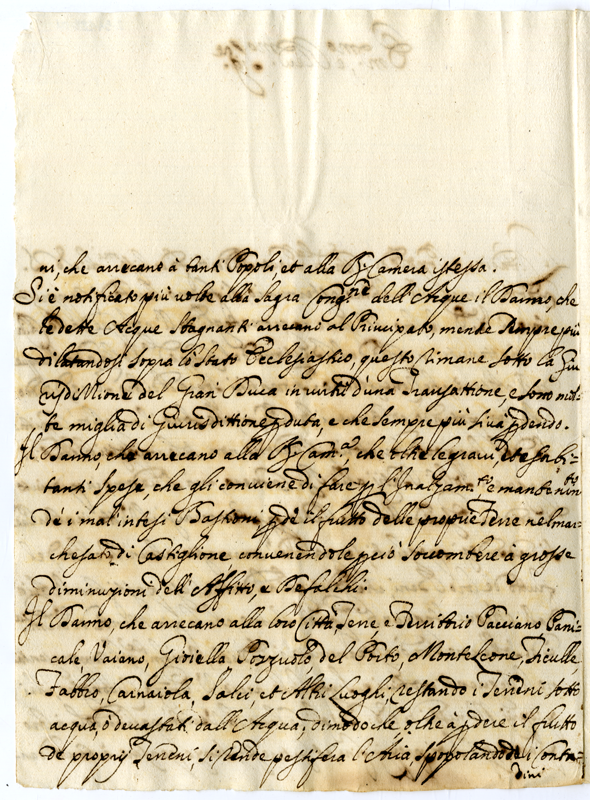 ni, che arrecano à tanti Popoli, et alla R. Camera istessa.
Si è notificato più volte alla Sagra Cong.ne dell'Acque il Danno, che
le dette Acque Stagnanti arrecano al Principato, mentre Sempre più
dilatandosi sopra lo Stato Ecclesiastico, questo rimane sotto la Giu
risdizione del Gran Duca in virtù d'una Transattione, e sono mol=
te miglia di Giurisdittione perduta, e che sempre più si và perdendo.
Il Danno che arrecano alla R. Cam.a, che oltre le gravi, et esorbi=
tanti Spese, che gli conviene di fare per l'Inalzam.to e mantenim.to
de i mal'intesi Bastioni perde il frutto delle proprie Terre nel mar=
chesato di Castiglione convenendole perciò Soccombere à grosse
diminuzioni dell'Affitto, e Defalchi.
Il Danno, che arrecano alla loro Città, Terre, e Territorio Pacciano Pani=
cale, Vaiano, Gioiella Pozzuolo del Porto, MonteLeone, Ficulle
Fabbro, Carnaiola, Salci et Altri Luoghi, restando i Terreni sotto
acqua, ò devastati dall'Acqua, di modo che, oltre à perdere il frutto
de proprij Terreni, si rende pestifera l'Aria, spopolandode i Conta=
dini